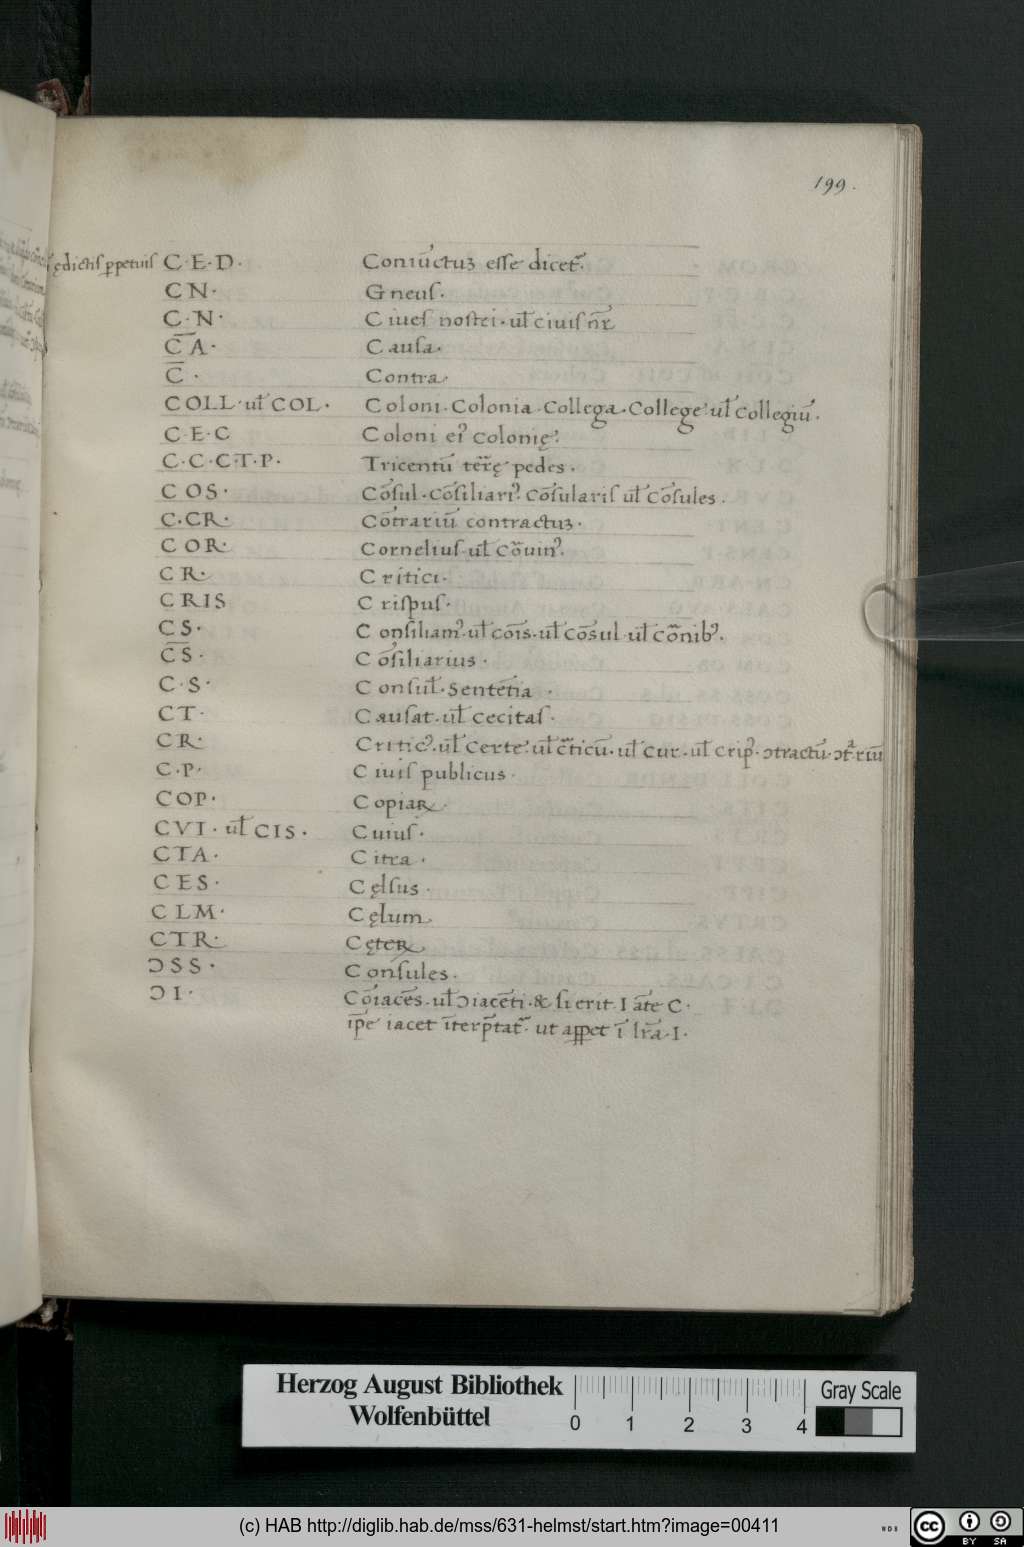 199.
ędictiſ ꝑpetuiſ C·E·D· Coniūctuꝫ eſſe dicet᷑.
C N· Gneuſ·
C·N· Ciueſ noſtri·ul̄ ciuiſ nr̄
C̄A· Cauſa·
C̄· Contra·
COLL·ul̄ COL· Coloni·Colonia·Collega·College·ul̄ Collegiū·
C·E·C Coloni ei᾽ colonię·
C·C·C·T·P· Tricentū terrę pedes·
COS· Cōſul·Cōſiliari᾽ Cōſulariſ ul̄ Cōſules·
C·CR· Cōtrariū contractuꝫ·
COR· Corneliuſ·ul̄
CR· Critici·
CRIS Criſpuſ·
CS· Conſiliam᾽·ul̄ cōis·ul̄ cōſul·ul̄ cōnib᾽·
C̄S· Cōſiliarius·
C·S· Conſul̄·Sentētia·
CT· Cauſat·ul̄ cecitaſ·
CR· Critic᾽·ul̄ Certe·ul̄ c̄ticū·ul̄ Cur·ul̄ Crip᾽·ɔtractū·
C·P· Ciuiſ publicus·
COP· Copiaꝝ·
CVI·ul̄ CIS· Cuiuſ·
CTA· Citra·
CES· Cęlſus·
CLM· Cęlum
CTR· Cęteꝝ
ƆSS· Conſules·
ƆI· Cōiacēs·ul̄ ɔiacēti·& ſi erit·I āte C·
ip̄e iacet īterp̄tat᷑·ut aꝑꝑet ī lr̄a·I·
Herzog August Bibliothek
Wolfenbüttel
0 1 2 3 4
Gray Scale
(c) HAB http://diglib.hab.de/mss/631-helmst/start.htm?image=00411
WDB
cc BY SA